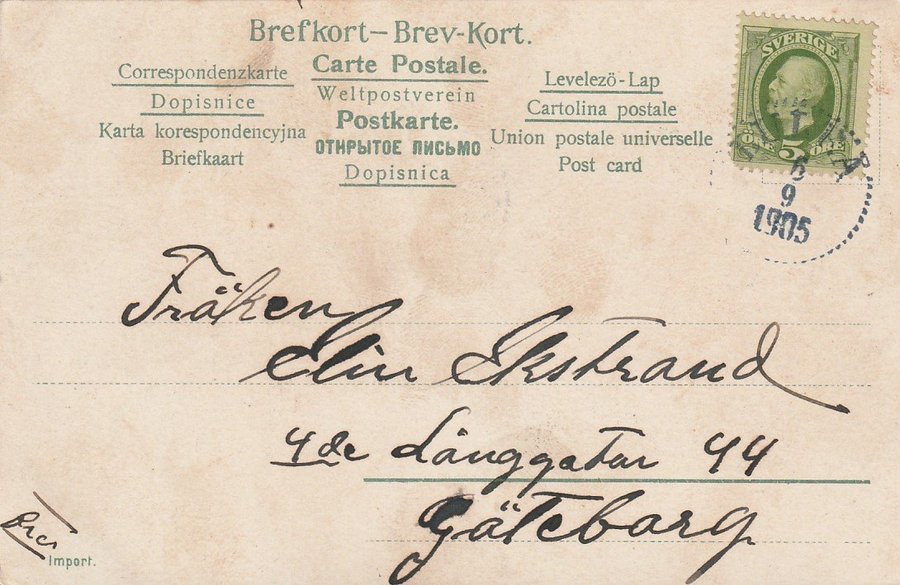 Brefkort–Brev-Kort.
Correspondenzkarte
Dopisnice
Karta korespondencyjna
Briefkaart
Carte Postale.
Weltpostverein
Postkarte.
ОТКРЫТОЕ ПИСЬМО
Dopisnica
Levelezö-Lap
Cartolina postale
Union postale universelle
Post card
SVERIGE
5
ÖRE ÖRE
6
9
1905
Fröken
Elin Ekstrand
4de Långgatan 44
Göteborg
Import.